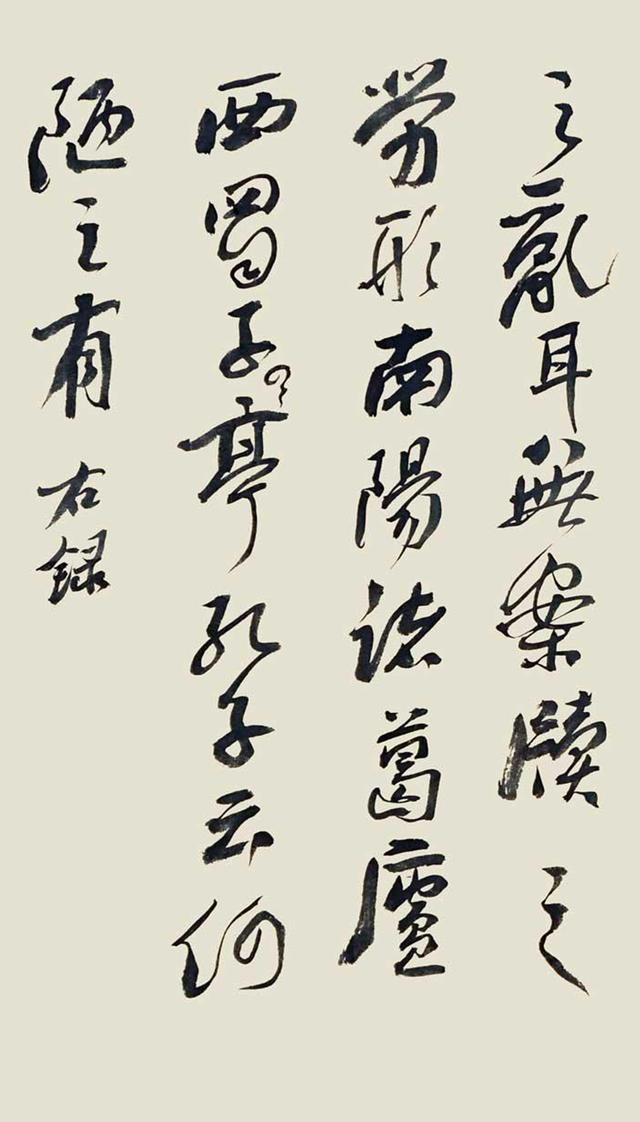 之亂耳無案牘之
勞形南陽諸葛廬
西蜀子云亭孔子云何
陋之有 右録